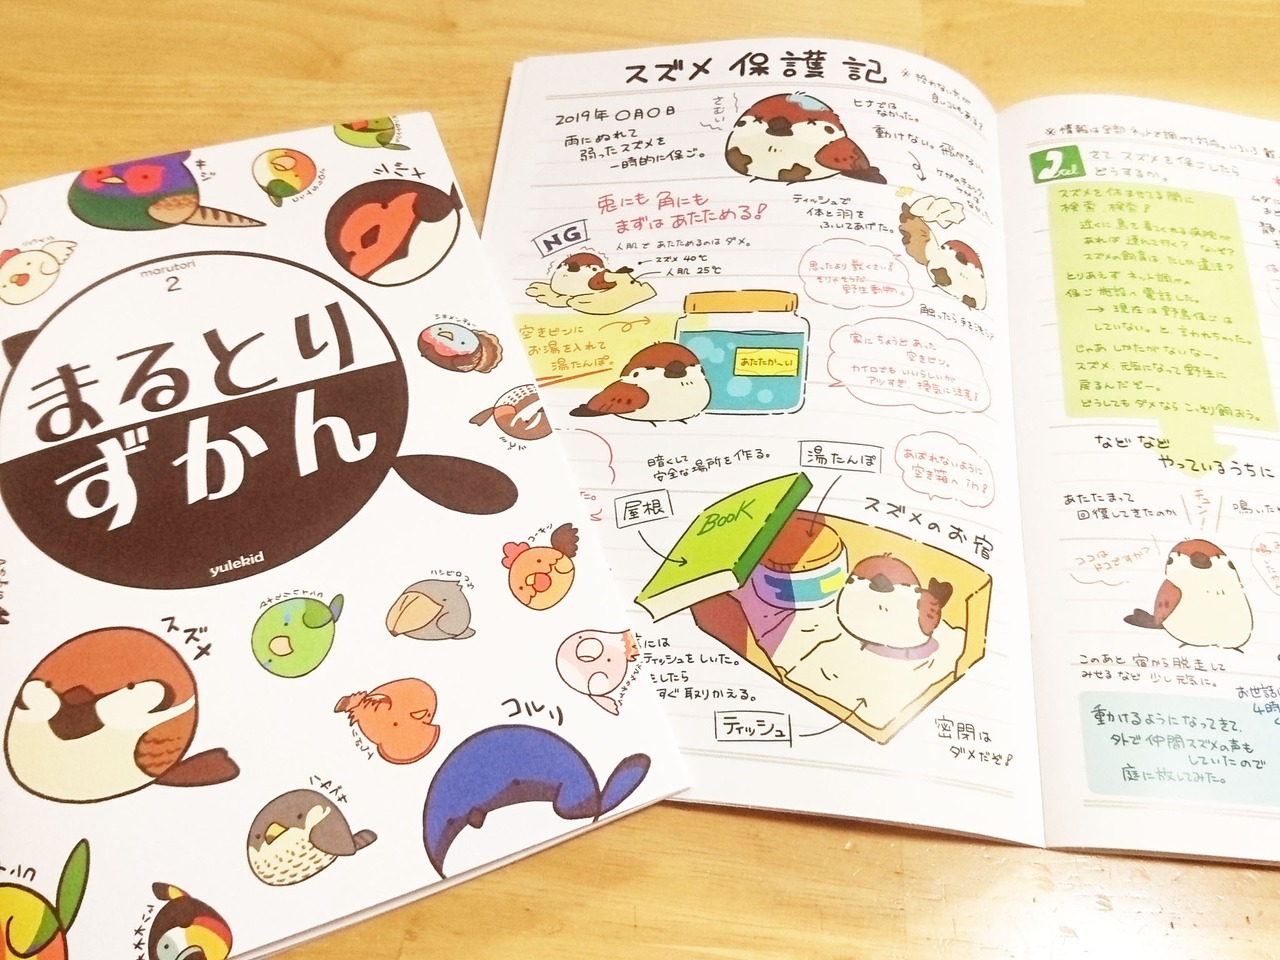 marutori
2
まるとり
ずかん
yulekid
キジ
スズメ
コルリ
ハシビロコウ
スズメ 保護記
2019年〇月〇日
雨にぬれて
弱ったスズメを
一時的に保ご。
さむい
ヒナでは
なかった。
動けない。飛べない。
兎にも角にも
まずはあたためる!
ティッシュで
体と羽を
ふいてあげた。
NG
人肌であたためるのはダメ。
スズメ 40℃
人肌 25℃
思ったより軟くさい!
野生動物。
空きビンに
お湯を入れて
湯たんぽ。
あたたか〜い
家にちょうどあった
空きビン。
カイロでもいいらしいが
アツすぎ、換気に注意!
暗くて
安全な場所を作る。
湯たんぽ
あばれないように
空き箱へin!
屋根
BOOK
スズメのお宿
には
ティッシュをしいた。
したら
すぐ取りかえる。
ティッシュ
密閉は
ダメだぞ!
※情報は全部ネットで調べて
さて スズメを保ごしたら
どうするか。
スズメを休ませてる間に
検索、検索!
近くに鳥を看てくれる病院が
あれば連れて行く? なぜ?
スズメの飼育は、たしか違法?
とりあえず ネット調べの
保ご施設へ電話した。
→ 現在は野鳥保ごは
していない。と言われちゃった。
じゃあしかたがないなー。
スズメ、元気になって野生に
戻るんだぞー。
どうしてもダメならこっそり飼おう。
などなど
やっているうちに
あたたまって
回復してきたのか
チュン!
鳴いた
ココは
ドコですか?
このあと宿から脱走して
みせるなど少し元気に。
お世話
4時
動けるようになってきて、
外で仲間スズメの声も
していたので
庭に放してみた。